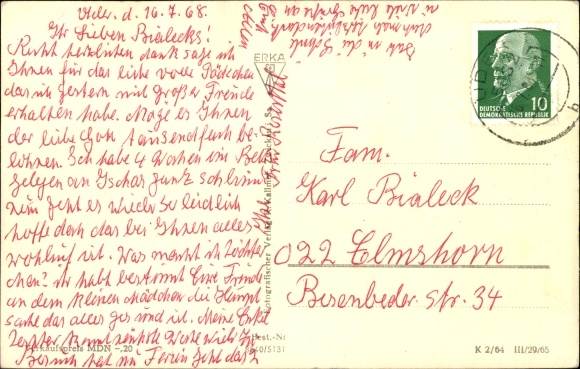 Uder. d. 16.7.68.
Ihr Lieben Bialecks!
Recht herzlichen dank sage ich
Ihnen für das liebe volle Päckchen
das ich gestern mit großer Freude
erhalten habe. Möge es Ihnen
der liebe Gott tausendfach be-
lohnen. Ich habe 4 Wochen im Bett
gelegen an Ischas ganz schlimm
nun geht es wieder so leidlich
hoffe doch das bei Ihnen alles
wohlauf ist. Was macht ihr Töchter-
chen? ihr habt bestimmt Eure Freude
an dem kleinen Mädchen die Haupt
sache das alles gesund ist. Meine Enkel
Besuch hat in Ferien geht das
in die Schule
u. viele liebe Grüße an
ERKA
DEUTSCHE
DEMOKRATISCHE REPUBLIK
10
Fam.
Karl Bialeck
022 Elmshorn
Besenbeder. Str. 34
Verkaufspreis MDN -,20
Best.-Nr
K 2/64 III/29/65